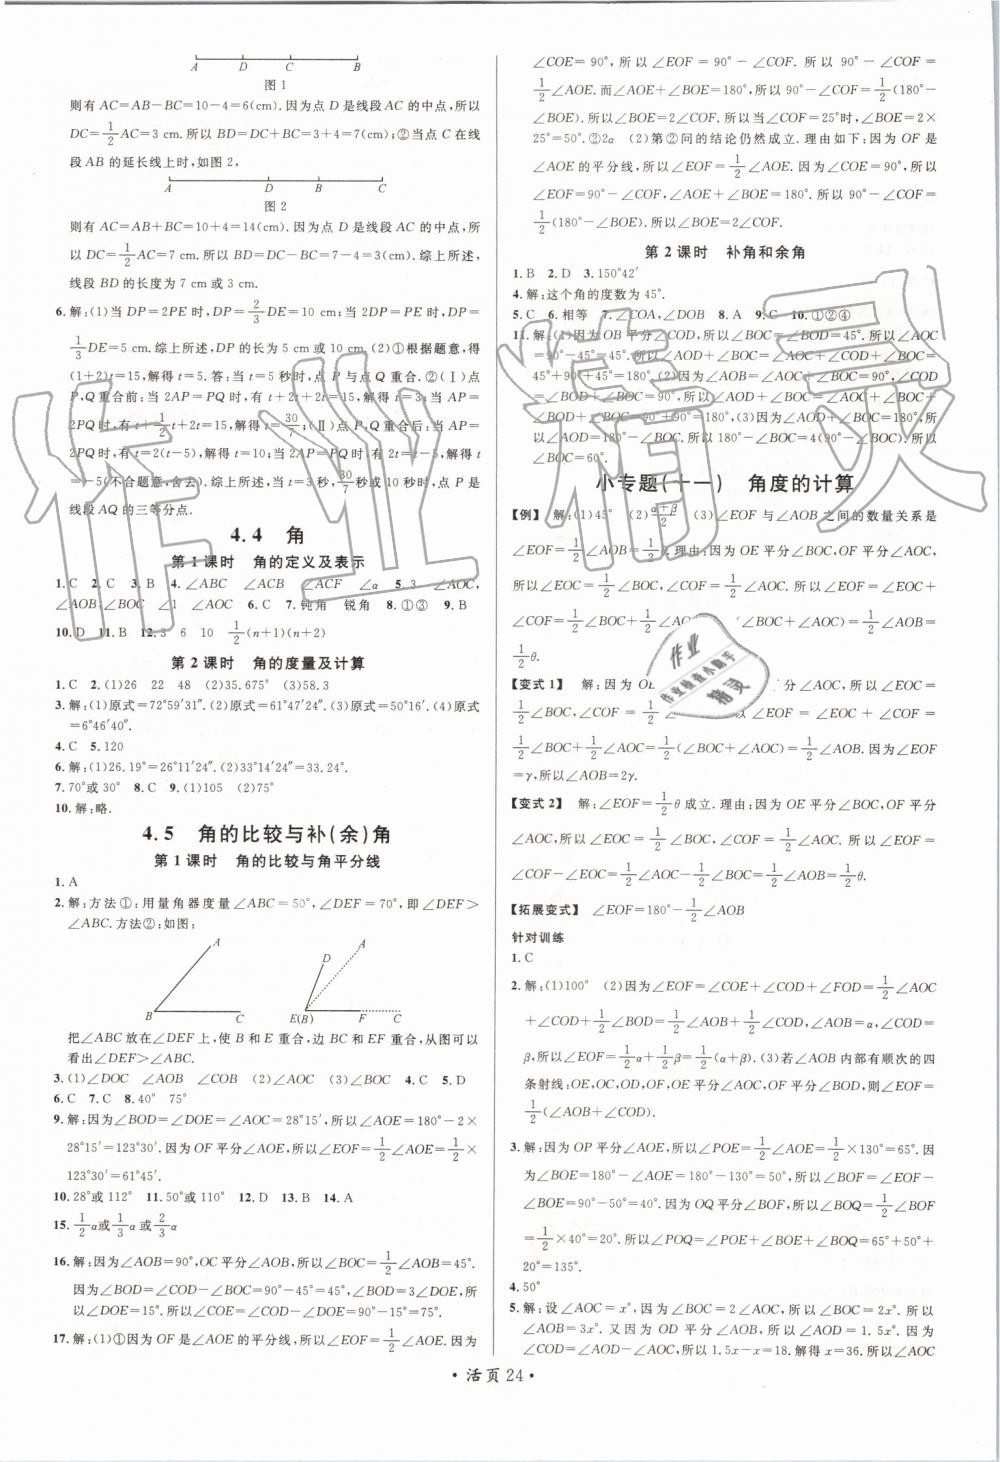 A D C B
图 1
则有 AC=AB-BC=10-4=6(cm).因为点 D 是线段 AC 的中点,所以
DC=1/2AC=3 cm.所以 BD=DC+BC=3+4=7(cm);②当点 C 在线
段 AB 的延长线上时,如图 2,
A D B C
图 2
则有 AC=AB+BC=10+4=14(cm).因为点 D 是线段 AC 的中点,所
以 DC=1/2AC=7 cm.所以 BD=DC-BC=7-4=3(cm).综上所述,
线段 BD 的长度为 7 cm 或 3 cm.
6.解:(1)当 DP=2PE 时,DP=2/3DE=10 cm;当 2DP=PE 时,DP=
1/3DE=5 cm.综上所述,DP 的长为 5 cm 或 10 cm.(2)①根据题意,得
(1+2)t=15,解得 t=5.答:当 t=5 秒时,点 P 与点 Q 重合.②(Ⅰ)点
P,Q 重合前:当 2AP=PQ 时,有 t+2t+2t=15,解得 t=3;当 AP=
2PQ 时,有 t+1/2t+2t=15,解得 t=30/7;(Ⅱ)点 P,Q 重合后:当 AP=
2PQ 时,有 t=2(t-5),解得 t=10;当 2AP=PQ 时,有 2t=t-5,解得 t
=-5(不合题意,舍去).综上所述,当 t=3 秒,30/7 秒或 10 秒时,点 P 是
线段 AQ 的三等分点.
4.4 角
第 1 课时 角的定义及表示
1.C 2.C 3.B 4.∠ABC ∠ACB ∠ACF ∠α 5.3 ∠AOC,
∠AOB,∠BOC ∠1 ∠AOC 6.C 7.钝角 锐角 8.①③ 9.B
10.D 11.B 12.3 6 10 1/2(n+1)(n+2)
第 2 课时 角的度量及计算
1.C 2.(1)26 22 48 (2)35.675° (3)58.3
3.解:(1)原式=72°59′31″.(2)原式=61°47′54″.(3)原式=50°16′.(4)原式
=6°46′40″.
4.C 5.120
6.解:(1)26.19°=26°11′24″.(2)33°14′24″=33.24°.
7.70°或 30° 8.C 9.(1)105 (2)75°
10.解:略.
4.5 角的比较与补(余)角
第 1 课时 角的比较与角平分线
1.A
2.解:方法①:用量角器度量∠ABC=50°,∠DEF=70°,即∠DEF>
∠ABC.方法②:如图:
A B C
D A E(B) F C
把∠ABC 放在∠DEF 上,使 B 和 E 重合,边 BC 和 EF 重合,从图可以
看出∠DEF>∠ABC.
3.(1)∠DOC ∠AOB ∠COB (2)∠AOC (3)∠BOC 4.C 5.D
6.C 7.C 8.40° 75°
9.解:因为∠BOD=∠DOE=∠AOC=28°15′,所以∠AOE=180°-2×
28°15′=123°30′.因为 OF 平分∠AOE,所以∠EOF=1/2∠AOE=1/2×
123°30′=61°45′.
10.28°或 112° 11.50°或 110° 12.D 13.B 14.A
15.1/2α或1/3α或2/3α
16.解:因为∠AOB=90°,OC 平分∠AOB,所以∠BOC=1/2∠AOB=45°.
因为∠BOD=∠COD-∠BOC=90°-45°=45°,∠BOD=3∠DOE,所
以∠DOE=15°.所以∠COE=∠COD-∠DOE=90°-15°=75°.
17.解:(1)①因为 OF 是∠AOE 的平分线,所以∠EOF=1/2∠AOE.因为
∠COE=90°,所以∠EOF=90°-∠COF.所以 90°-∠COF=
1/2∠AOE.而∠AOE+∠BOE=180°,所以 90°-∠COF=1/2(180°-
∠BOE).所以∠BOE=2∠COF.所以当∠COF=25°时,∠BOE=2×
25°=50°.②2α (2)第②问的结论仍然成立.理由如下:因为 OF 是
∠AOE 的平分线,所以∠EOF=1/2∠AOE.因为∠COE=90°,所以
∠EOF=90°-∠COF,∠AOE+∠BOE=180°.所以 90°-∠COF=
1/2(180°-∠BOE).所以∠BOE=2∠COF.
第 2 课时 补角和余角
1.B 2.D 3.150°42′
4.解:这个角的度数为 45°.
5.C 6.相等 7.∠COA,∠DOB 8.A 9.C 10.①②④
11.解:(1)因为 OB 平分∠COD,所以∠BOC=∠BOD=45°.所以∠AOC
=90°-45°=45°.所以∠AOD+∠BOC=∠AOC+∠COD+∠BOC=
45°+90°+45°=180°.(2)因为∠AOB=∠AOC+∠BOC=90°,∠COD
=∠BOD+∠BOC=90°,所以∠AOD+∠BOC=∠AOC+∠BOC+
∠BOD+∠BOC=90°+90°=180°.(3)因为∠AOD+∠BOC=180°,所
以∠AOD=180°-∠BOC.所以 180°-∠BOC=4(90°-∠BOC).所以
∠BOC=60°.
小专题(十一) 角度的计算
【例】 解:(1)45° (2)(α+β)/2 (3)∠EOF 与∠AOB 之间的数量关系是
∠EOF=1/2∠AOB,理由:因为 OE 平分∠BOC,OF 平分∠AOC,
所以∠EOC=1/2∠BOC,∠COF=1/2∠AOC.所以∠EOF=∠EOC+
∠COF=1/2∠BOC+1/2∠AOC=1/2(∠BOC+∠AOC)=1/2∠AOB=
1/2θ.
【变式 1】 解:因为 OE 平分∠AOC,
∠BOC,∠COF=1/2∠AOC.所以∠EOF=∠EOC+∠COF=
1/2∠BOC+1/2∠AOC=1/2(∠BOC+∠AOC)=1/2∠AOB.因为∠EOF
=γ,所以∠AOB=2γ.
【变式 2】 解:∠EOF=1/2θ成立.理由:因为 OE 平分∠BOC,OF 平分
∠AOC,所以∠EOC=1/2∠BOC,∠COF=1/2∠AOC.所以∠EOF=
∠COF-∠EOC=1/2∠AOC-1/2∠BOC=1/2∠AOB=1/2θ.
【拓展变式】 ∠EOF=180°-1/2∠AOB
针对训练
1.C
2.解:(1)100° (2)因为∠EOF=∠COE+∠COD+∠FOD=1/2∠AOC
+∠COD+1/2∠BOD=1/2∠AOB+1/2∠COD,∠AOB=α,∠COD=
β,所以∠EOF=1/2α+1/2β=1/2(α+β).(3)若∠AOB 内部有顺次的四
条射线:OE,OC,OD,OF,OE 平分∠AOC,OF 平分∠BOD,则∠EOF=
1/2(∠AOB+∠COD).
3.解:因为 OP 平分∠AOE,所以∠POE=1/2∠AOE=1/2×130°=65°.因
为∠BOE=180°-∠AOE=180°-130°=50°,所以∠BOF=∠EOF-
∠BOE=90°-50°=40°.因为 OQ 平分∠BOF,所以∠BOQ=1/2∠BOF
=1/2×40°=20°.所以∠POQ=∠POE+∠BOE+∠BOQ=65°+50°+
20°=135°.
4.50°
5.解:设∠AOC=x°,因为∠BOC=2∠AOC,所以∠BOC=2x°.所以
∠AOB=3x°.又因为 OD 平分∠AOB,所以∠AOD=1.5x°.因为
∠COD=∠AOD-∠AOC,所以 1.5x-x=18.解得 x=36.所以∠AOC
·活页 24·
作业精灵
作业
作业检查小助手
精灵